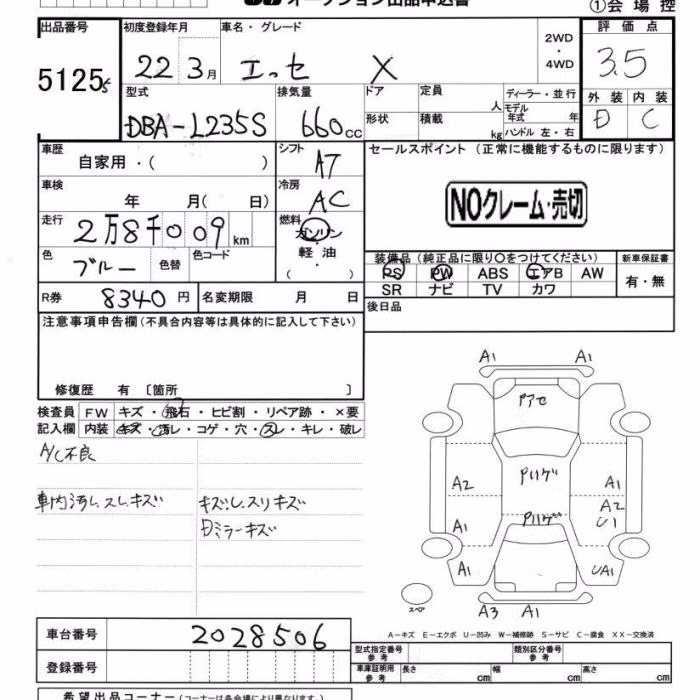 オークション出品申込書
①会場控
出品番号 初度登録年月 車名・グレード 2WD・4WD 評価点
5125 22年3月 エッセ X 3.5
型式 排気量 ドア 定員 人 ディーラー・並行 外装 内装
DBA-L235S 660cc 形状 積載 kg モデル年式 年 ハンドル 左・右 D C
車歴 自家用・( ) シフト AT セールスポイント (正常に機能するものに限ります)
車検 年 月( 日) 冷房 AC
NOクレーム・売切
走行 2万8千009km 燃料 ガソリン
軽油
( )
色 ブルー 色替 色コード
装備品(純正品に限り○をつけてください) 新車保証書
PS PW ABS エアB AW 有・無
SR ナビ TV カワ
R券 8340円 名変期限 月 日 後日品
注意事項申告欄(不具合内容等は具体的に記入して下さい)
修復歴 有 〔箇所 〕
検査員 FW キズ・飛石・ヒビ割・リペア跡・×要
記入欄 内装 キズ・汚レ・コゲ・穴・スレ・キレ・破レ
A/C不良
車内汚レ、スレ、キズ キズレスリキズ
Dミラーキズ
A1 A1
Pアセ
A2 Pリゲ A1
A2
A1 Pリゲ U1
A1 UA1
スペア A3 A1
A-キズ E-エクボ U-凹み W-補修跡 S-サビ C-腐食 XX-交換済
車台番号 2028506
登録番号
型式指定番号 参考 類別区分番号 参考
車庫証明用 参考 長さ cm 幅 cm 高さ cm
希望出品コーナー(コーナーは各会場により異なります)